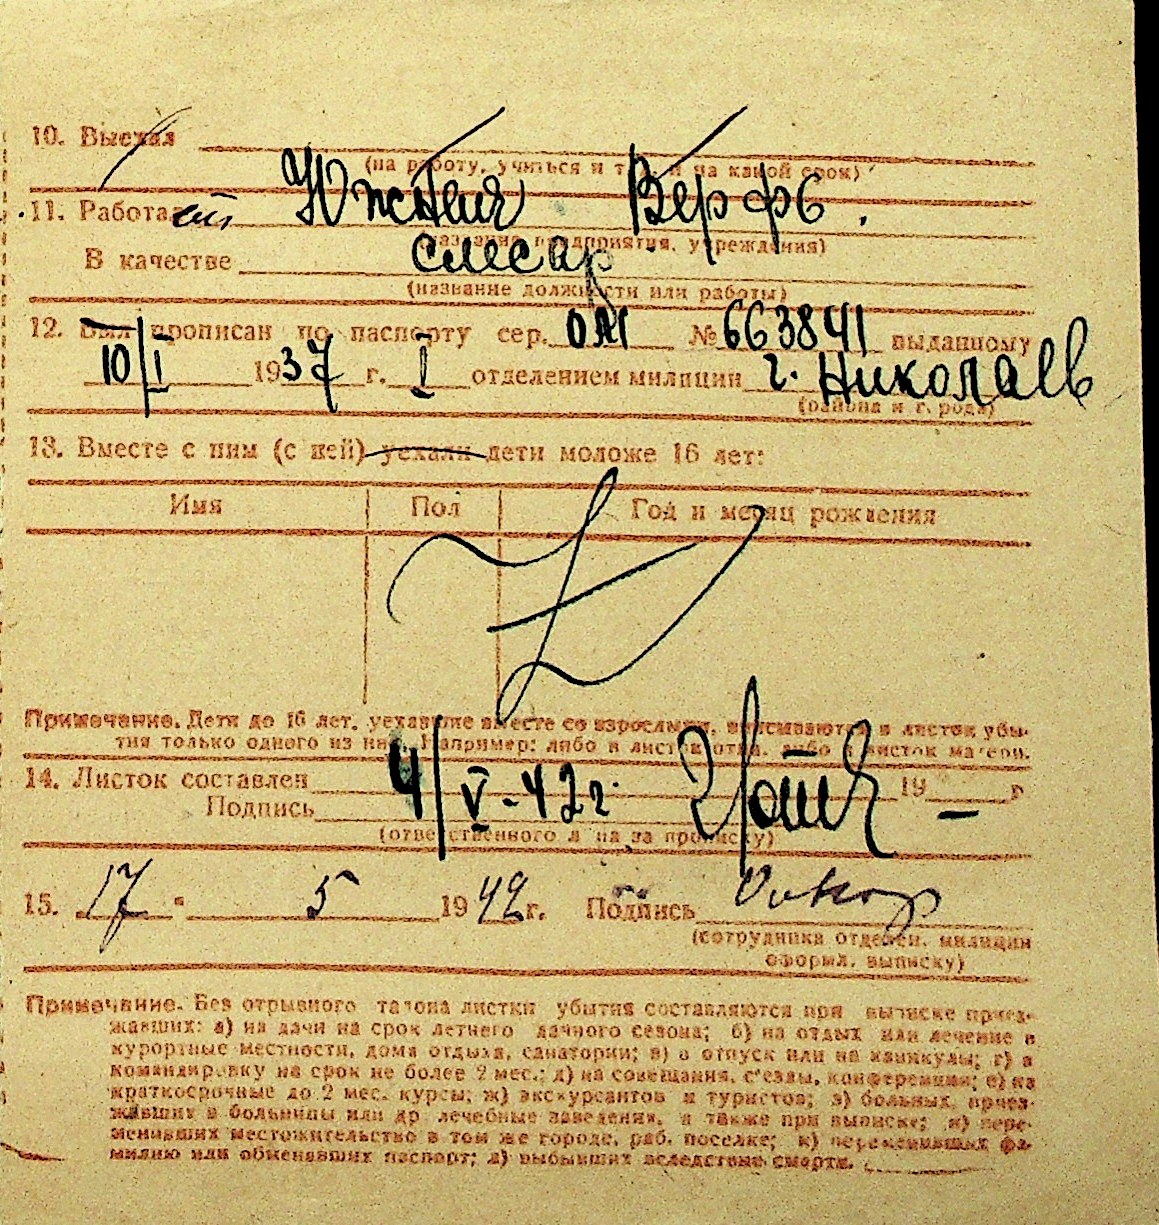 10. Выехал
(на работу, учиться и т. д. и на какой срок)
11. Работает Южная Верфь.
(название предприятия, учреждения)
В качестве слесар
(название должности или работы)
12. Был прописан по паспорту сер. № 663841 выданному
10/I 1937 г. I отделением милиции г. Николаев
(района и города)
13. Вместе с ним (с ней) уехали дети моложе 16 лет:
Имя Пол Год и месяц рождения
Примечание. Дети до 16 лет, уехавшие вместе со взрослыми, вписываются в листок убы-
тия только одного из них. Например: либо в листок отца, либо в листок матери.
14. Листок составлен 4/V-42 г. 19 г
Подпись
(ответственного лица за прописку)
15. 17 " 5 1942 г. Подпись
(сотрудника отделен. милиции
оформл. выписку)
Примечание. Без отрывного талона листки убытия составляются при выписке приез-
жавших: а) на дачи на срок летнего дачного сезона; б) на отдых или лечение в
курортные местности, дома отдыха, санатории; в) в отпуск или на каникулы; г) в
командировку на срок не более 2 мес.; д) на совещания, с'езды, конференции; е) на
краткосрочные до 2 мес. курсы; ж) экскурсантов и туристов; з) больных, приез-
жавших в больницы или др лечебные заведения, а также при выписке; и) пере-
менивших местожительство в том же городе, раб. поселке; к) переменивших фа-
милию или обменявших паспорт; л) выбывших вследствие смерти.